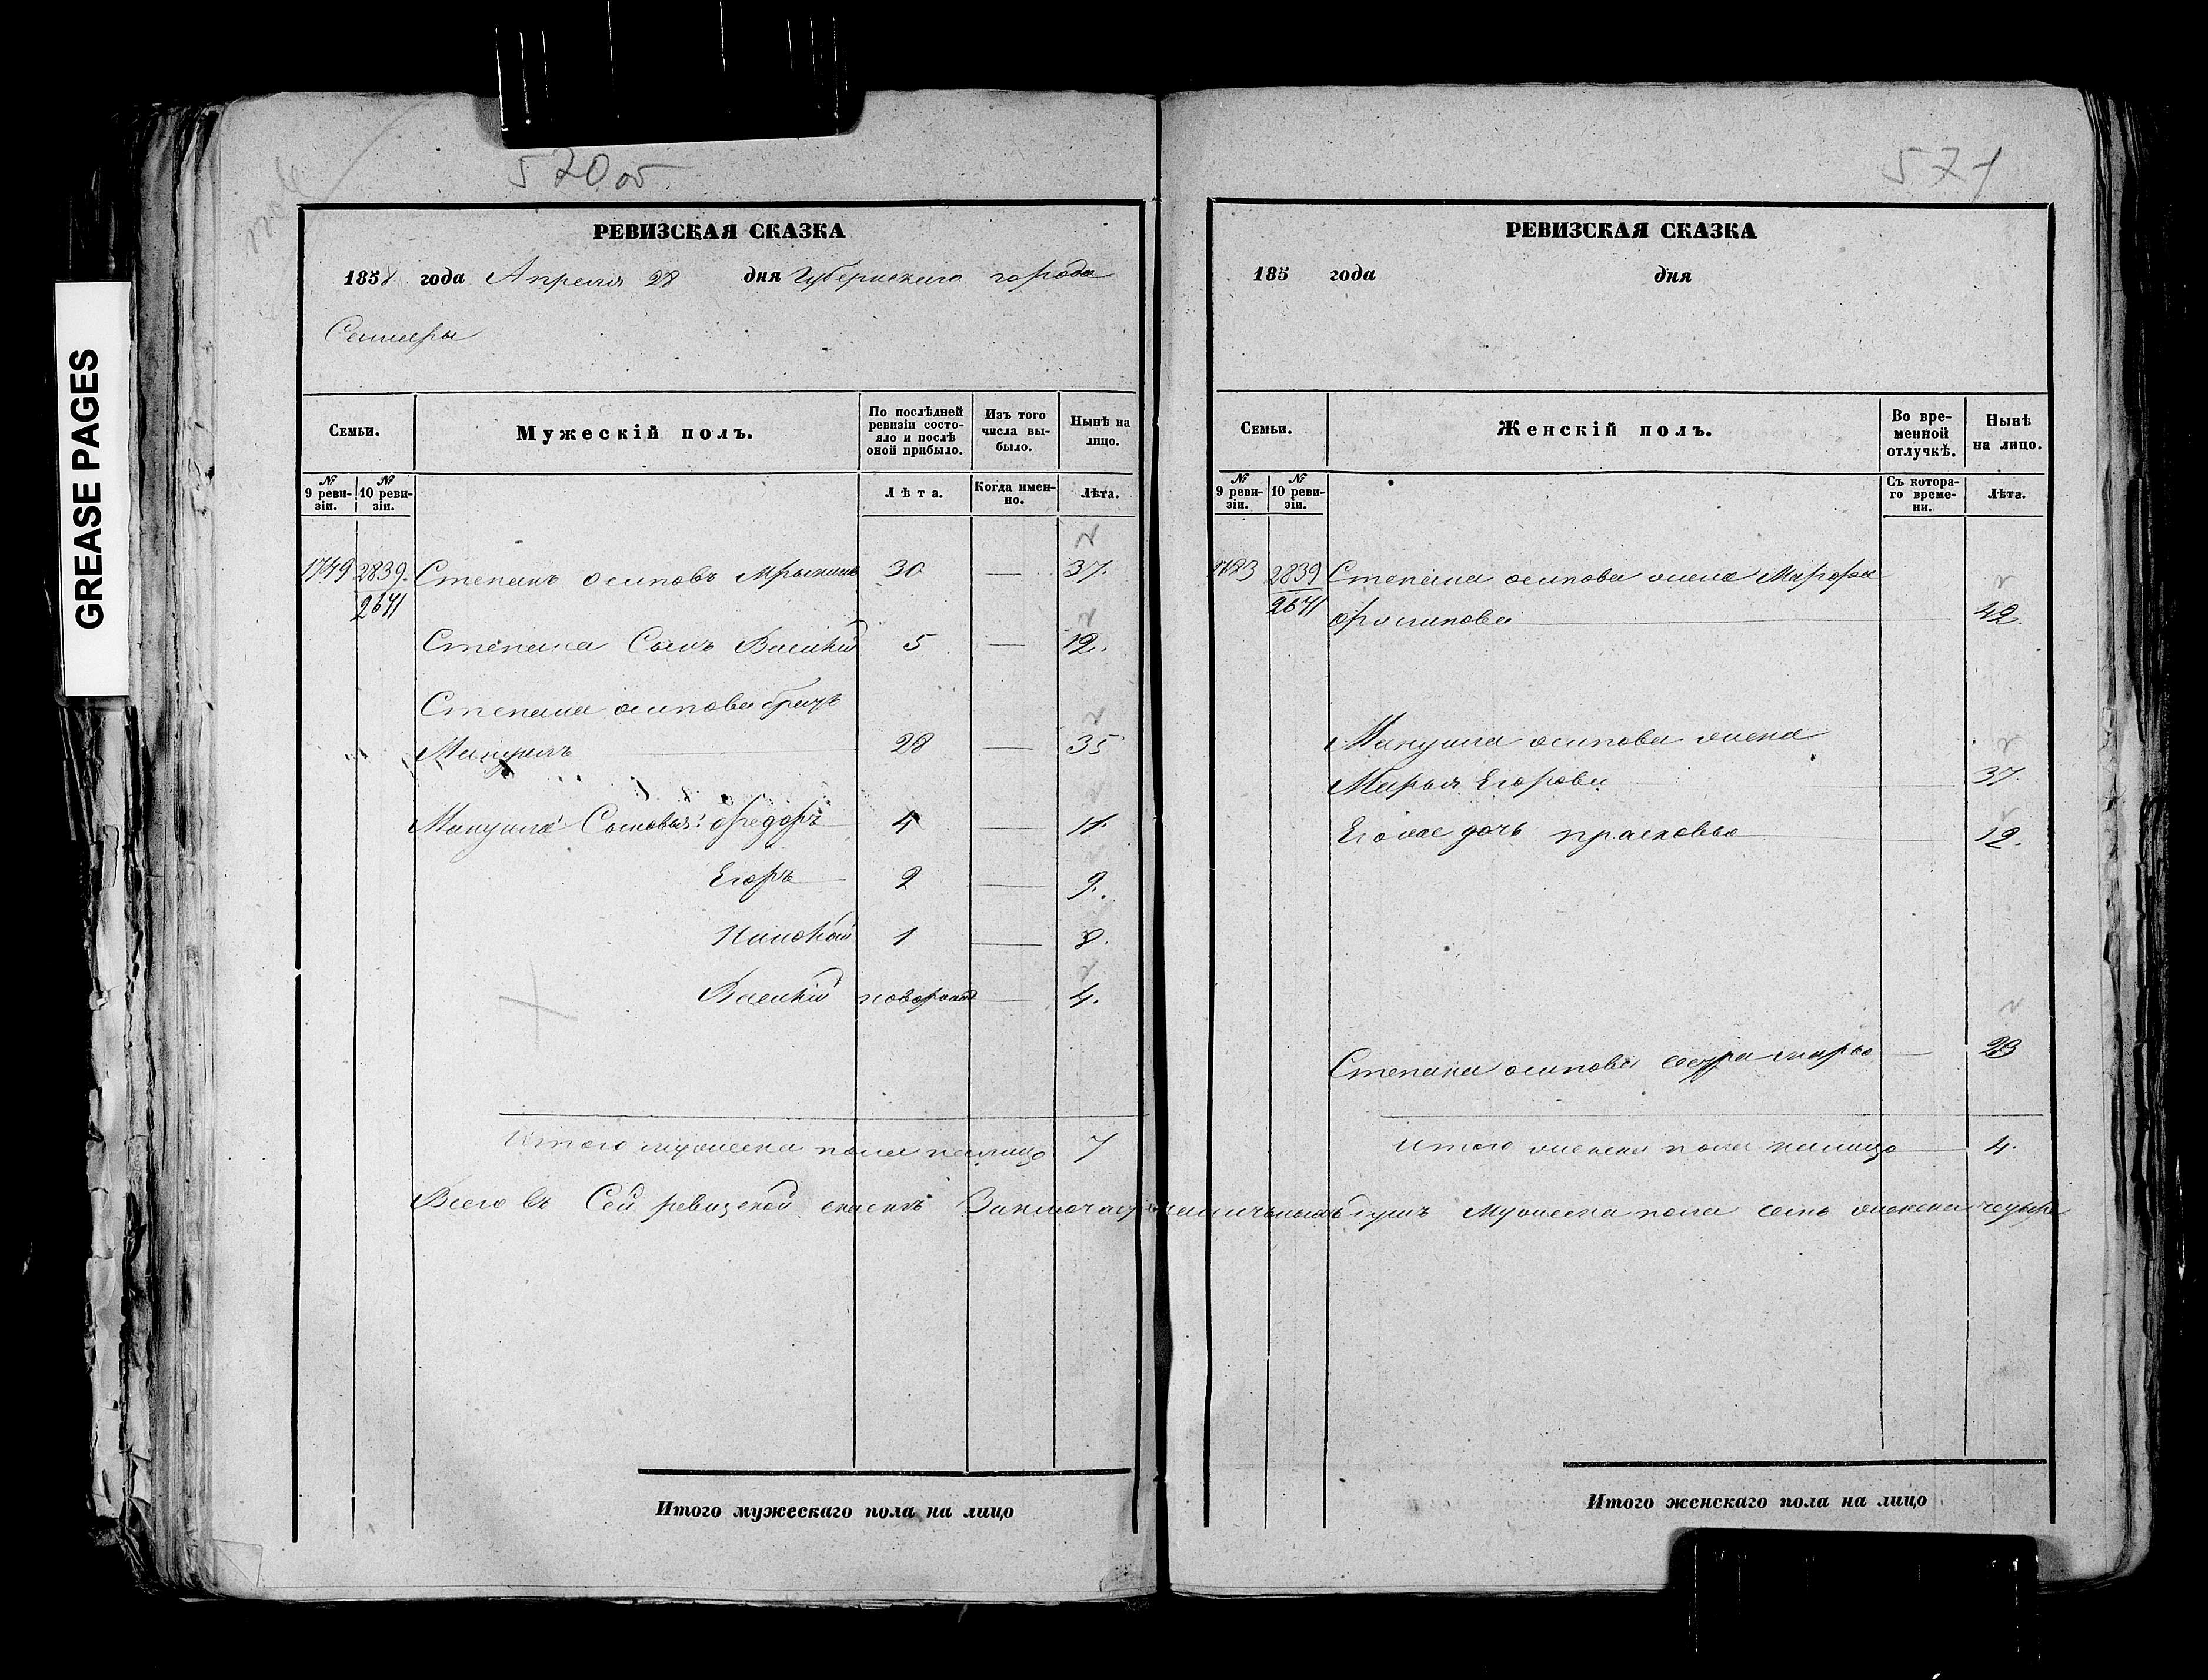 GREASE PAGES
570 об
РЕВИЗСКАЯ СКАЗКА
1858 года Апреля 28 дня Губернскаго города
Самары
Семьи.
Мужескій полъ.
По послѣдней ревизіи состояло и послѣ оной прибыло.
Изъ того числа выбыло.
Нынѣ на лицо.
№ 9 ревизіи.
№ 10 ревизіи.
Лѣта.
Когда именно.
Лѣта.
1749 2839. Степанъ осиповъ 30 — 37.
2671
Степана Сынъ Василій 5 — 12.
Степана осипова братъ
Мануилъ 28 — 35
Мануила Сыновья: Федоръ 4 — 11.
Егоръ 2 — 9.
Николай 1 — 8.
Василій новорожд — 4.
Итого мужеска пола налицо 7
571
РЕВИЗСКАЯ СКАЗКА
185 года дня
Семьи.
Женскій полъ.
Во временной отлучкѣ.
Нынѣ на лицо.
№ 9 ревизіи.
№ 10 ревизіи.
Съ котораго времени.
Лѣта.
2839 Степана осипова жена Марфа
2671 Филипова 42.
Мануила осипова жена
Марья Егорова 37.
Его же дочь прасковья 12.
Степана осипова сестра марья — 23
Итого женска пола налицо 4.
Всего въ Сей ревизской сказкѣ Заключает наличныхъ душъ Мужеска пола семь женска четыре
Итого мужескаго пола на лицо
Итого женскаго пола на лицо